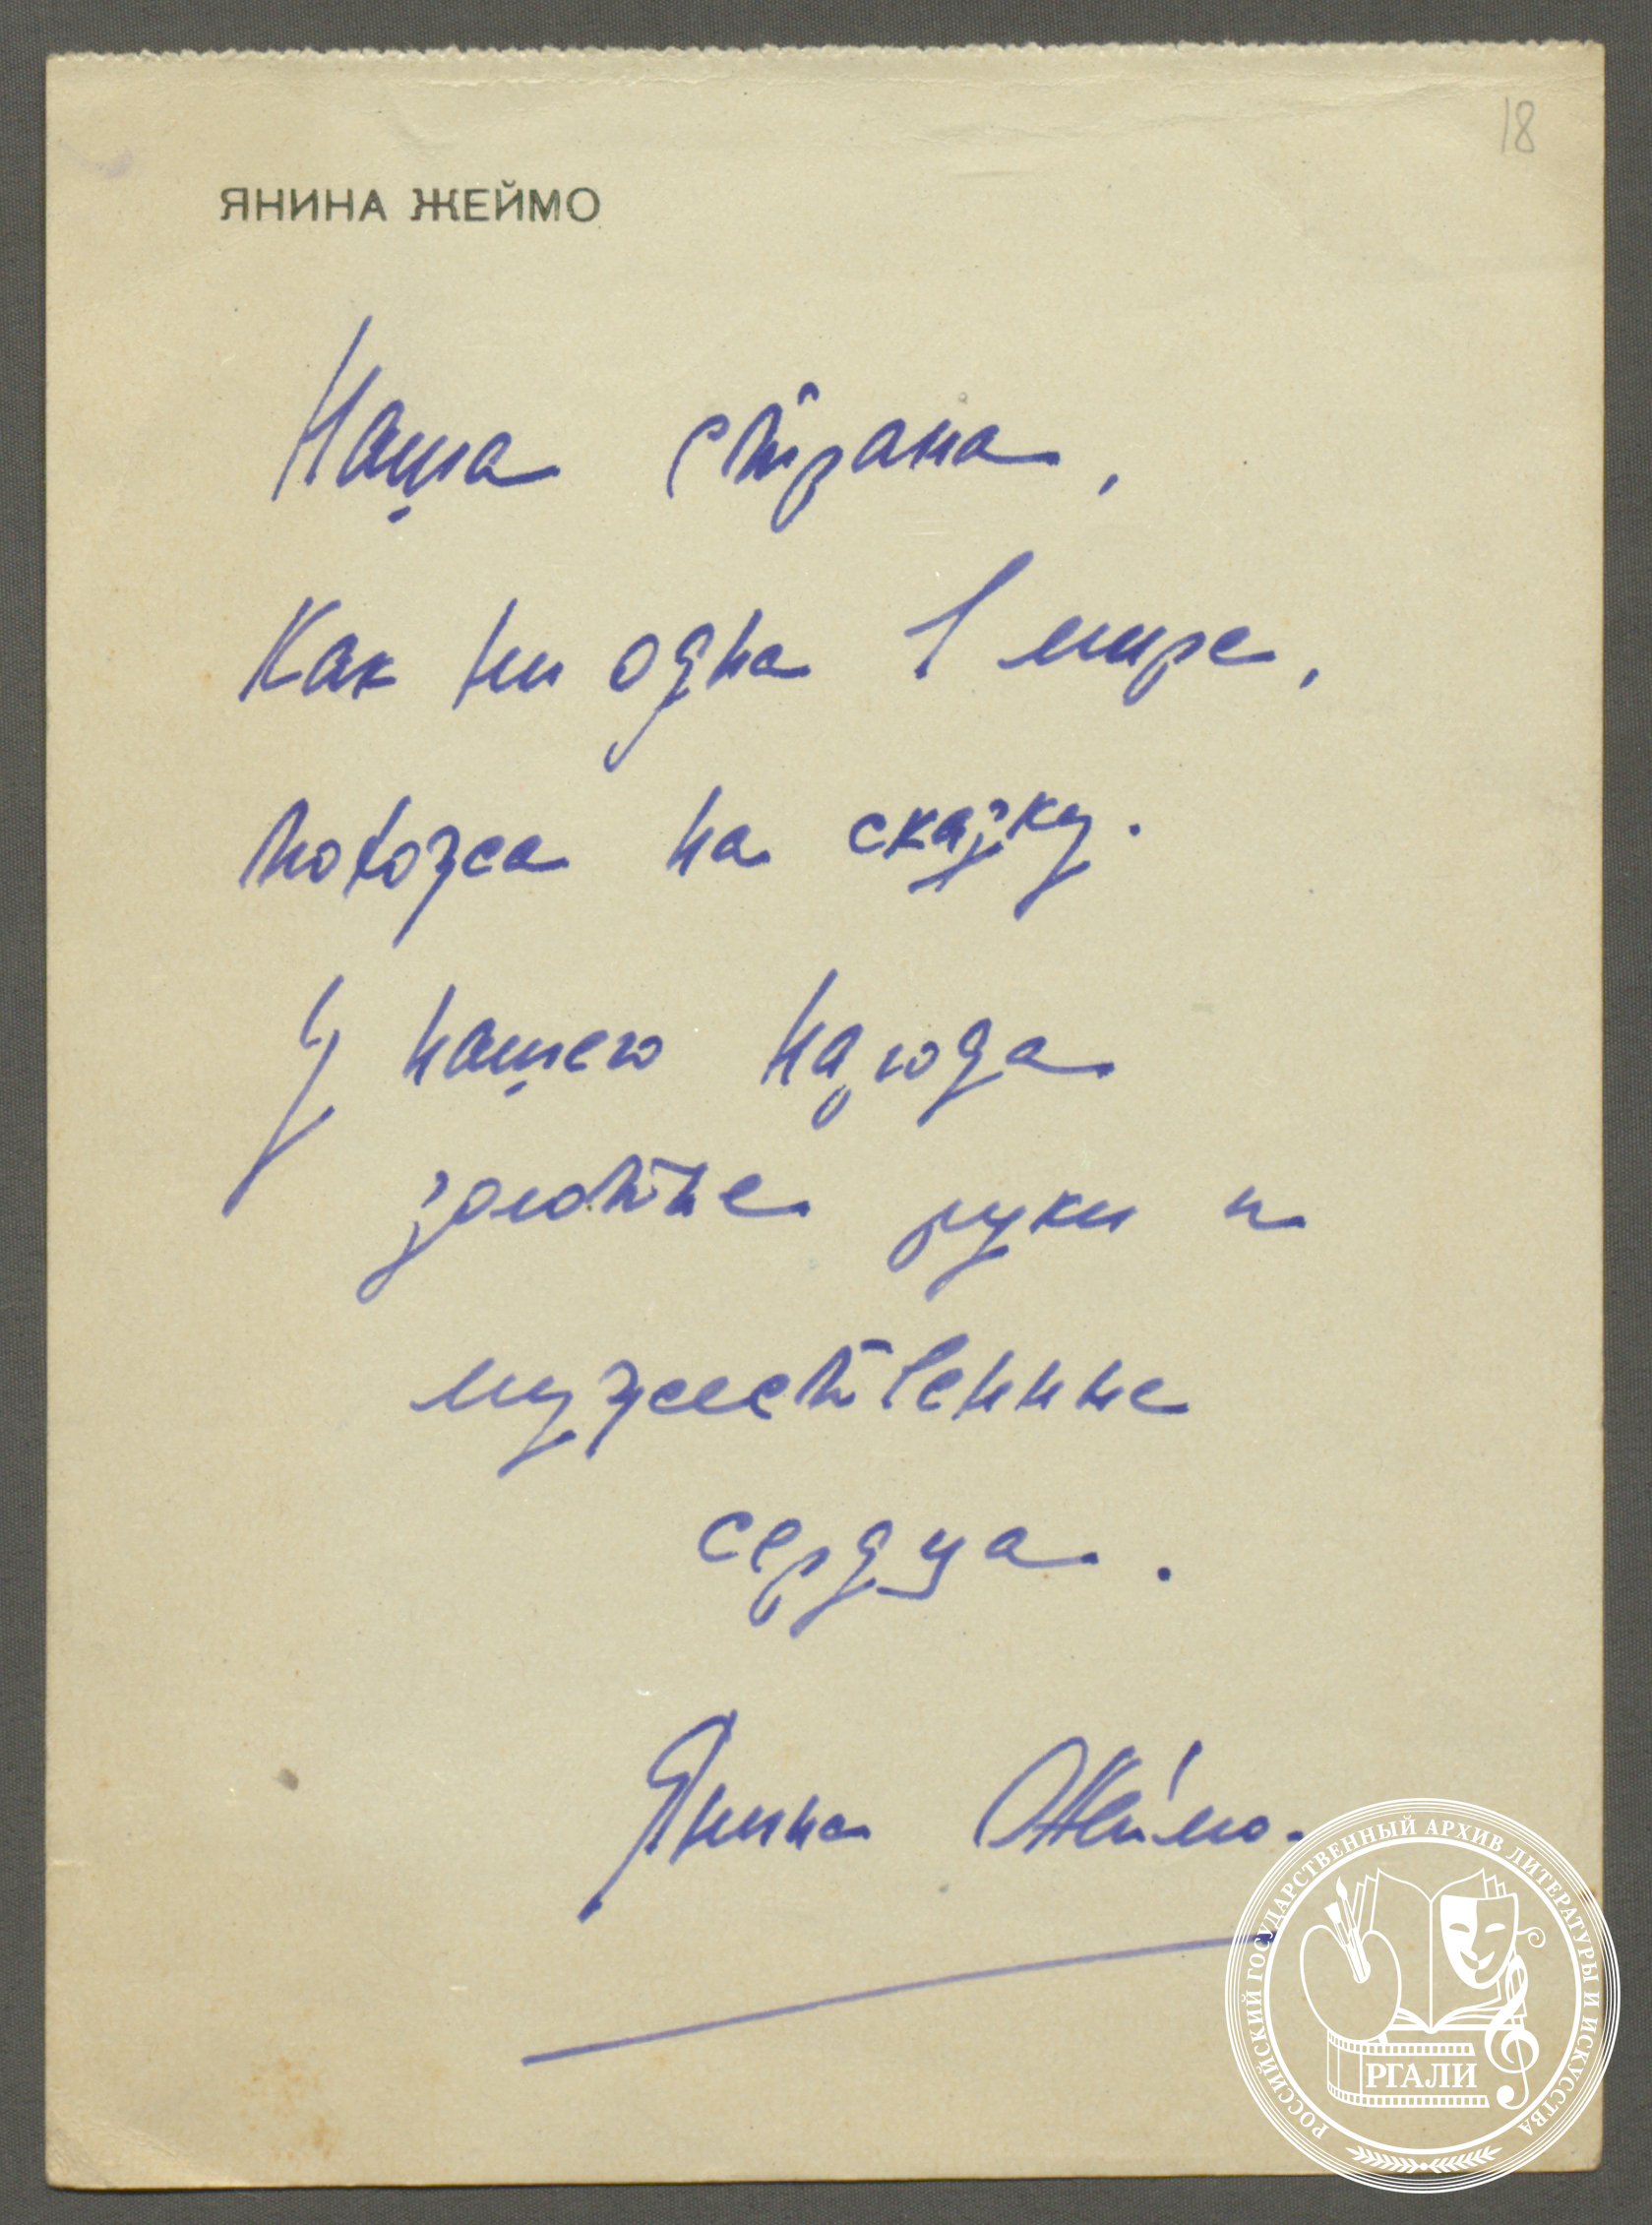 18
ЯНИНА ЖЕЙМО
Наша страна,
Как ни одна в мире,
похожа на сказку.
У нашего народа
золотые руки и
мужественные
сердца.
Янина Жеймо.
РОССИЙСКИЙ ГОСУДАРСТВЕННЫЙ АРХИВ ЛИТЕРАТУРЫ И ИСКУССТВА
РГАЛИ